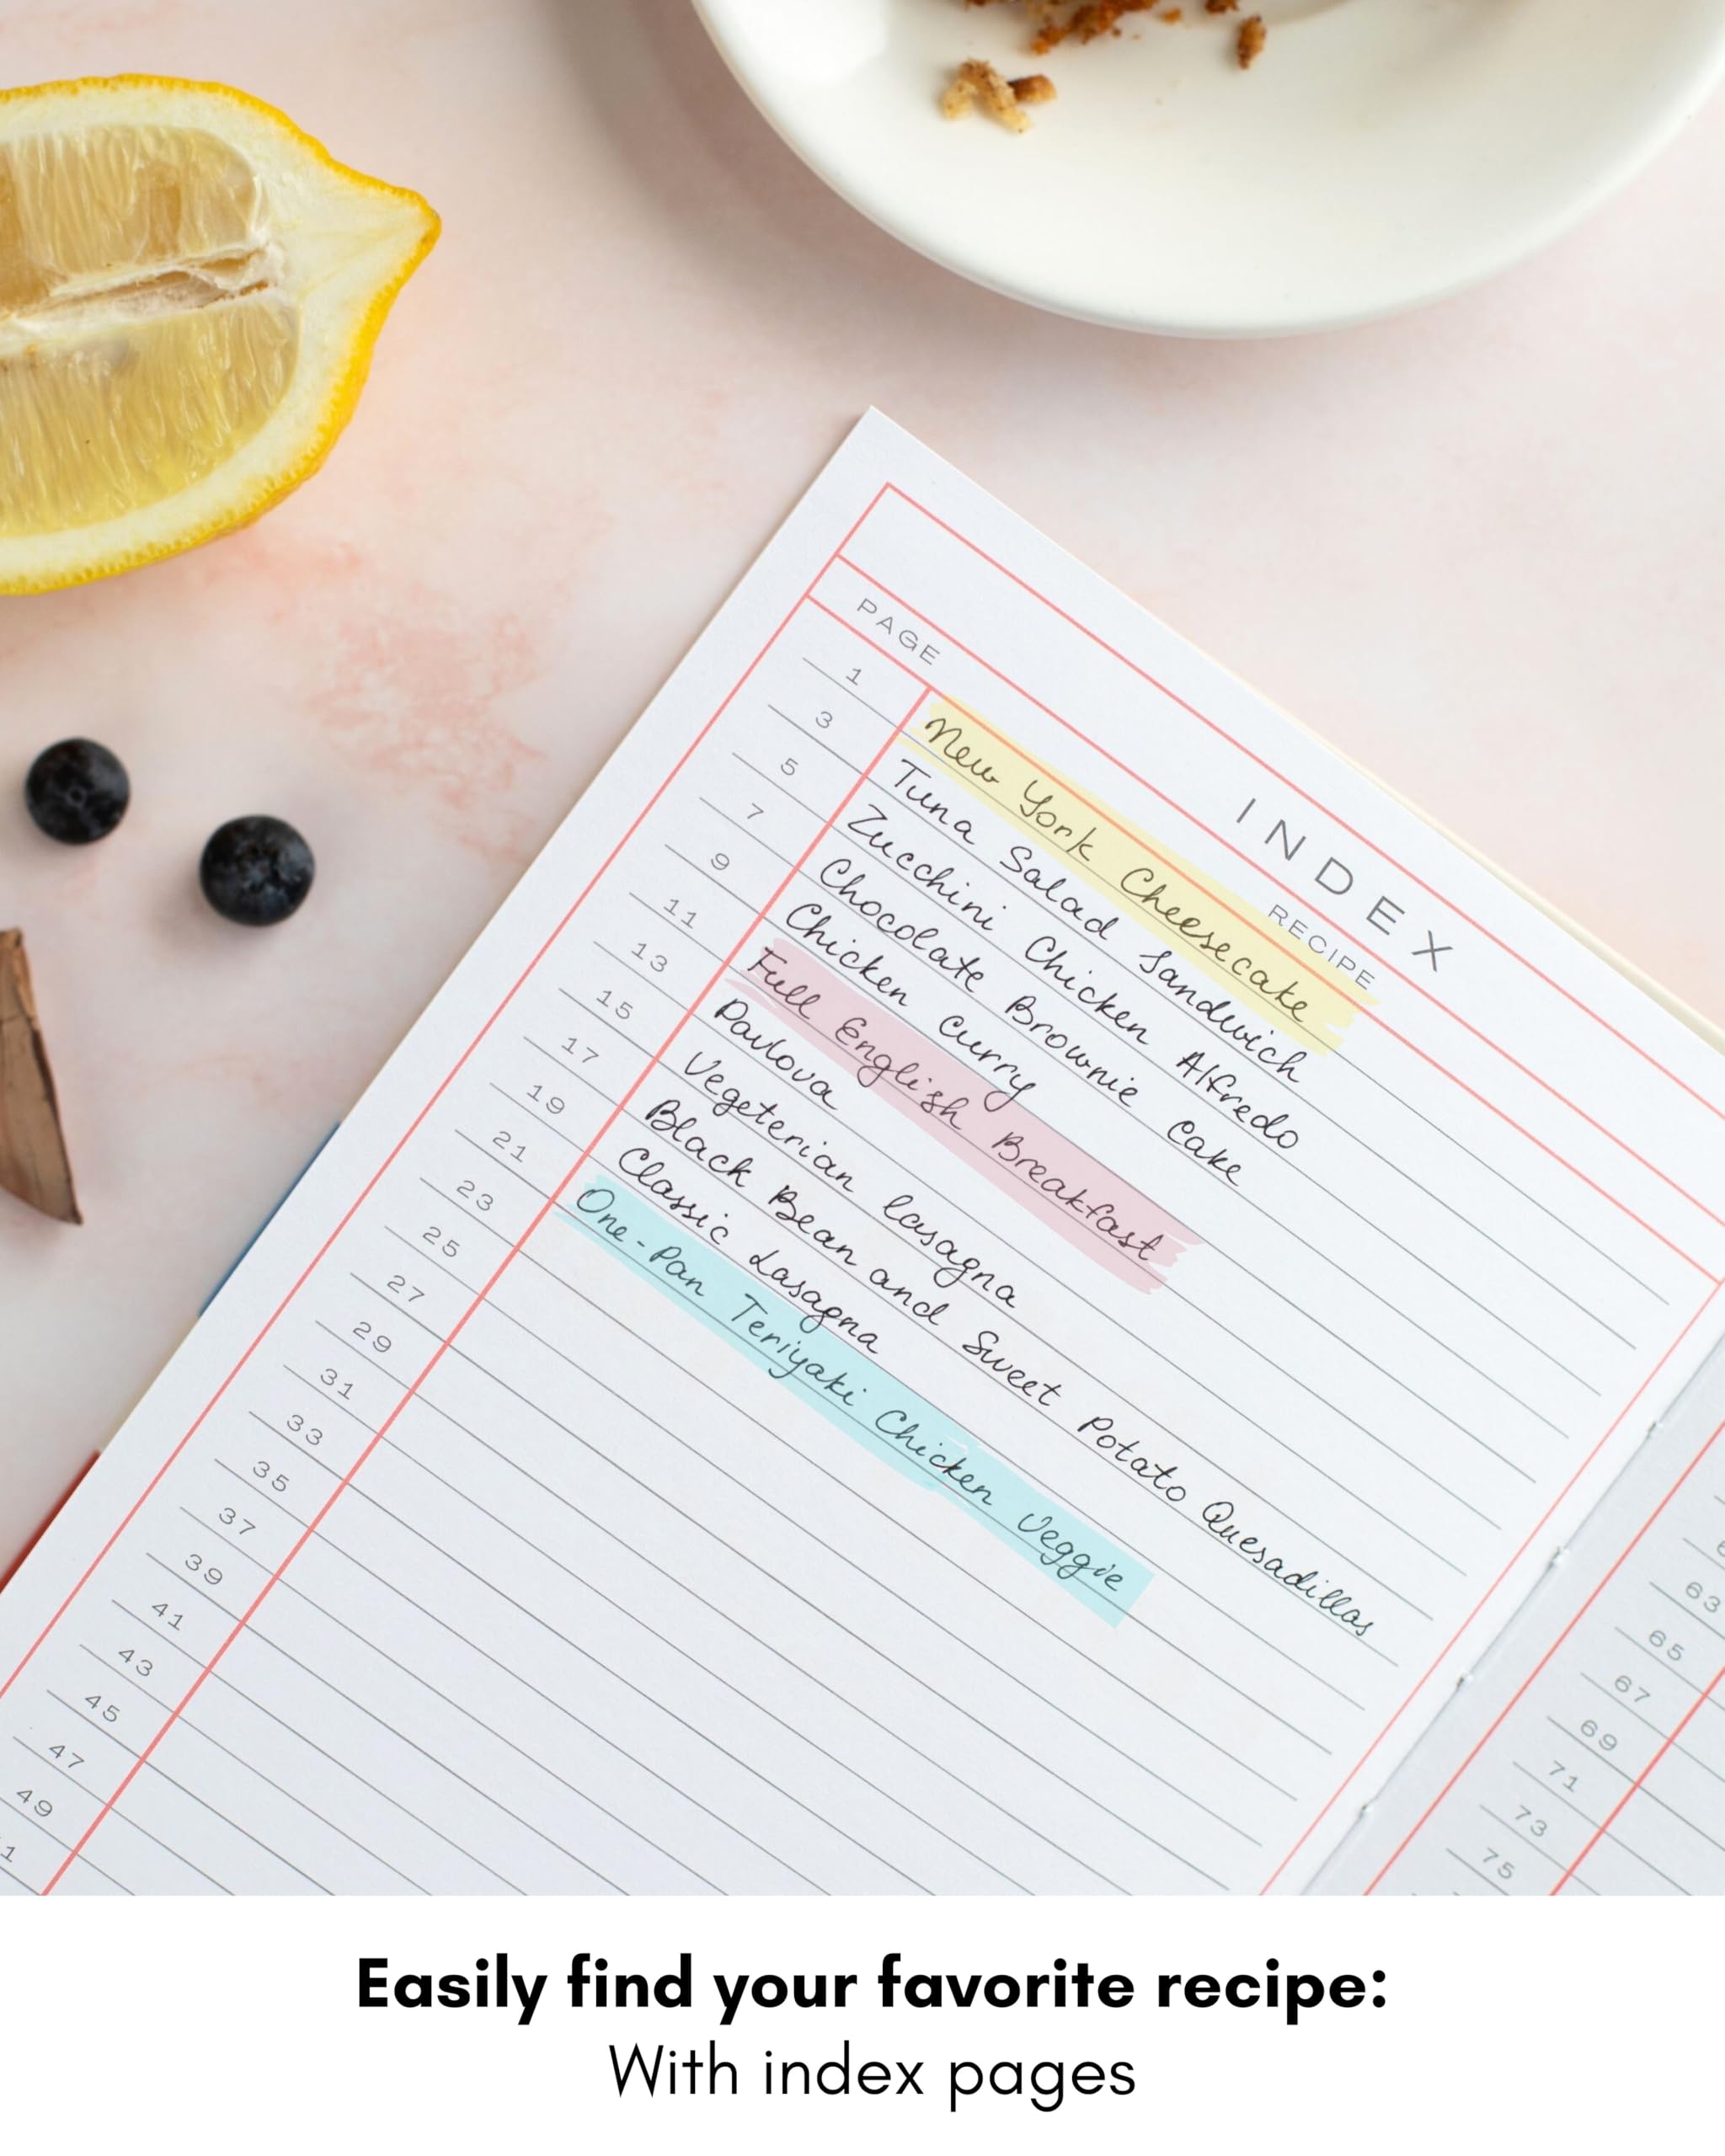 INDEX
PAGE RECIPE
1 New York Cheesecake
3 Tuna Salad Sandwich
5 Zucchini Chicken Alfredo
7 Chocolate Brownie Cake
9 Chicken Curry
11 Full English Breakfast
13 Pavlova
15 Vegeterian lasagna
17 Black Bean and Sweet Potato Quesadillas
19 Classic Lasagna
21 One-Pan Teriyaki Chicken Veggie
23
25
27
29
31
33
35
37
39
41
43
45
47
49
63
65
67
69
71
73
75
Easily find your favorite recipe:
With index pages